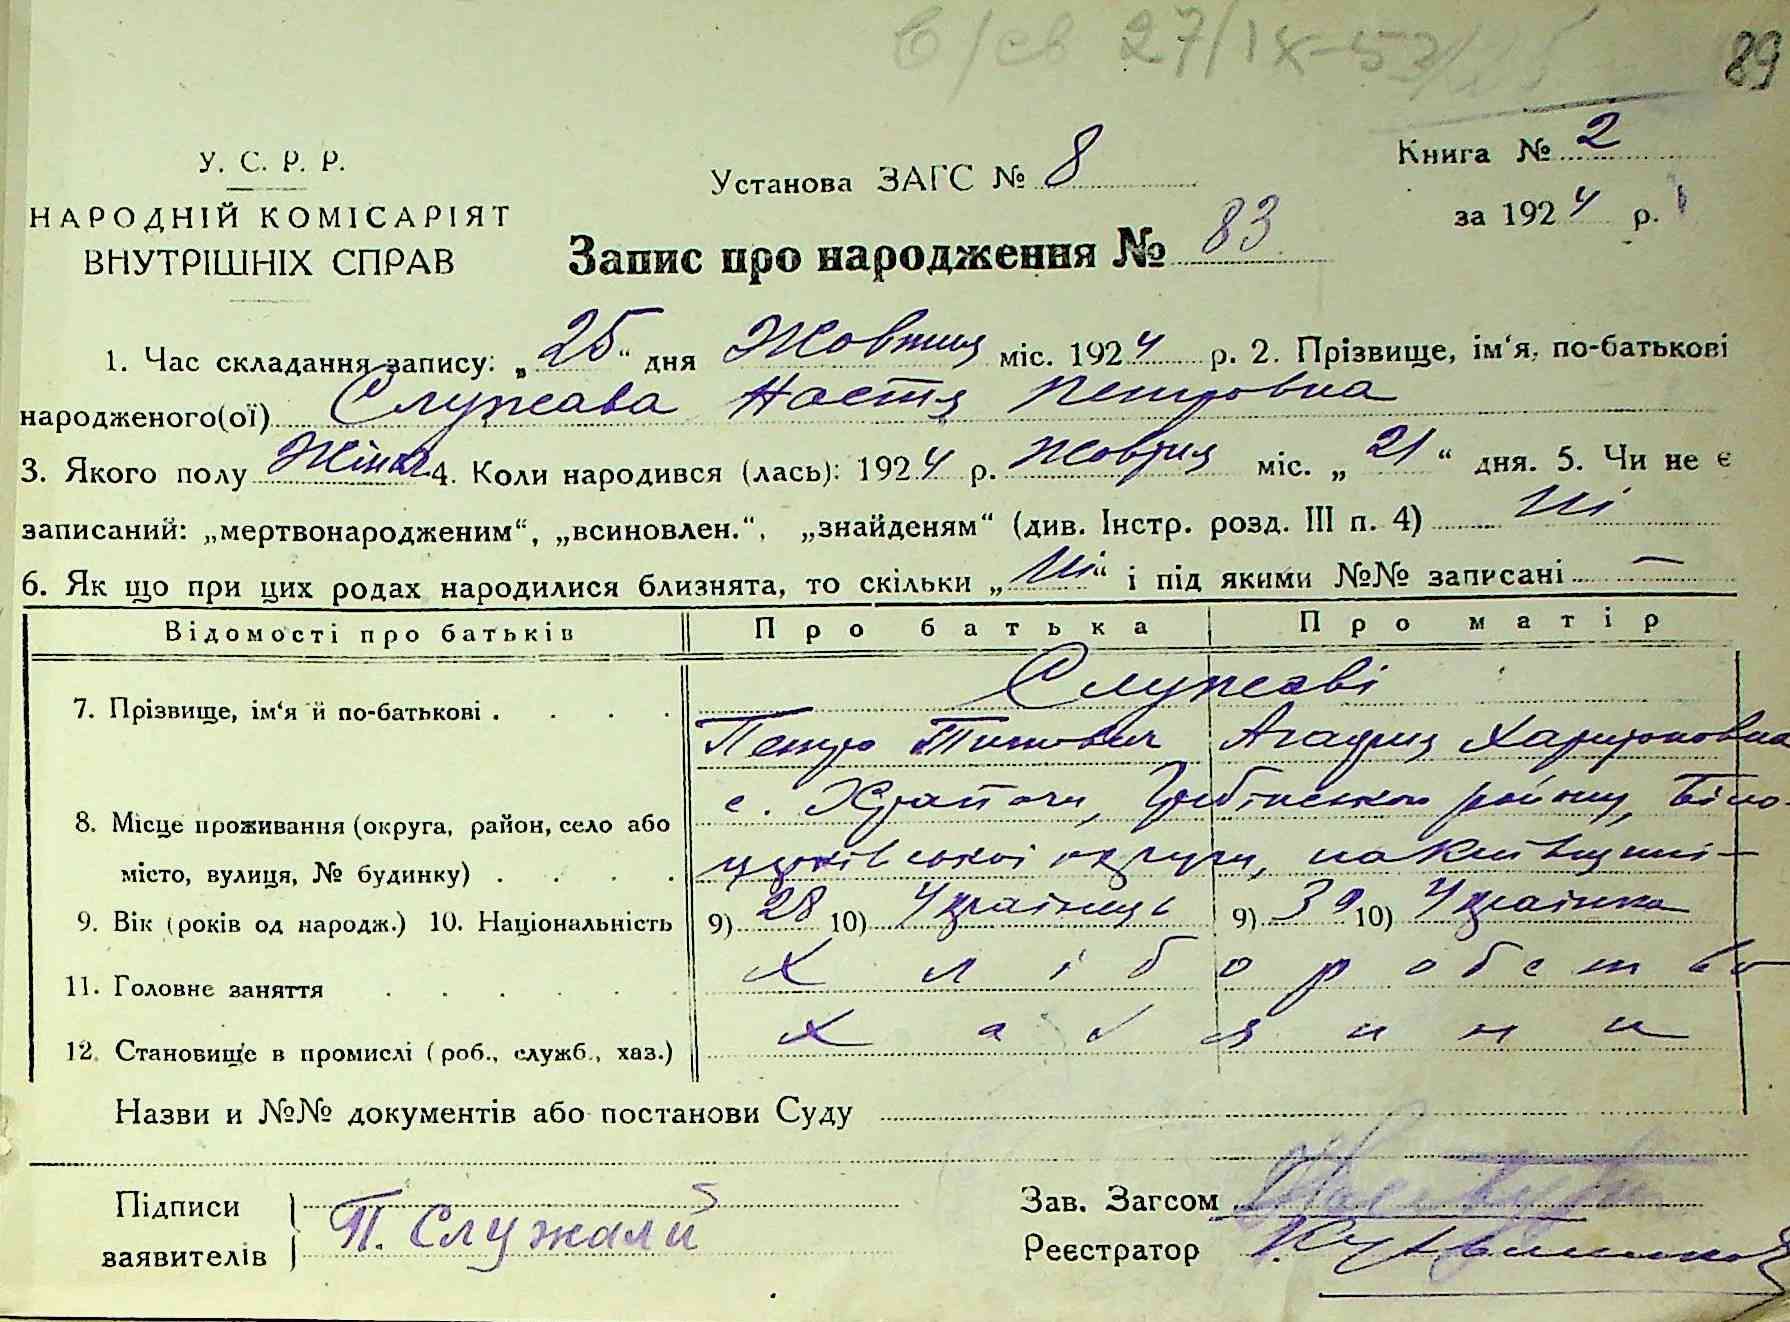 в/св 27/IX-53
89
У. С. Р. Р.
НАРОДНІЙ КОМІСАРІЯТ
ВНУТРІШНІХ СПРАВ
Установа ЗАГС № 8
Книга № 2
за 1924 р.
Запис про народження № 83
1. Час складання запису: „25“ дня Жовтня міс. 1924 р. 2. Прізвище, ім‘я, по-батькові
народженого(ої) Служава Настя Петровна
3. Якого полу Жіноч 4. Коли народився (лась): 1924 р. Жовтня міс. „21“ дня. 5. Чи не є
записаний: „мертвонародженим“, „всиновлен.“, „знайденям“ (див. Інстр. розд. III п. 4) Ні
6. Як що при цих родах народилися близнята, то скільки „Ні“ і під якими №№ записані —
Відомості про батьків Про батька Про матір
7. Прізвище, ім‘я й по-батькові . . . . Служаві
Петро Титович Агафия Харитоновна
8. Місце проживання (округа, район, село або
місто, вулиця, № будинку) . . . .
с. Храпачи, району, Біло
церківської округи, на Київщині —
9. Вік (років од народж.) 10. Національність 9) 28 10) Українець 9) 39 10) Українка
11. Головне заняття . . . . . . Хліборобство
12. Становище в промислі (роб., служб., хаз.) Хазяини
Назви и №№ документів або постанови Суду
Підписи
заявителів
П. Служалй
Зав. Загсом
Реєстратор